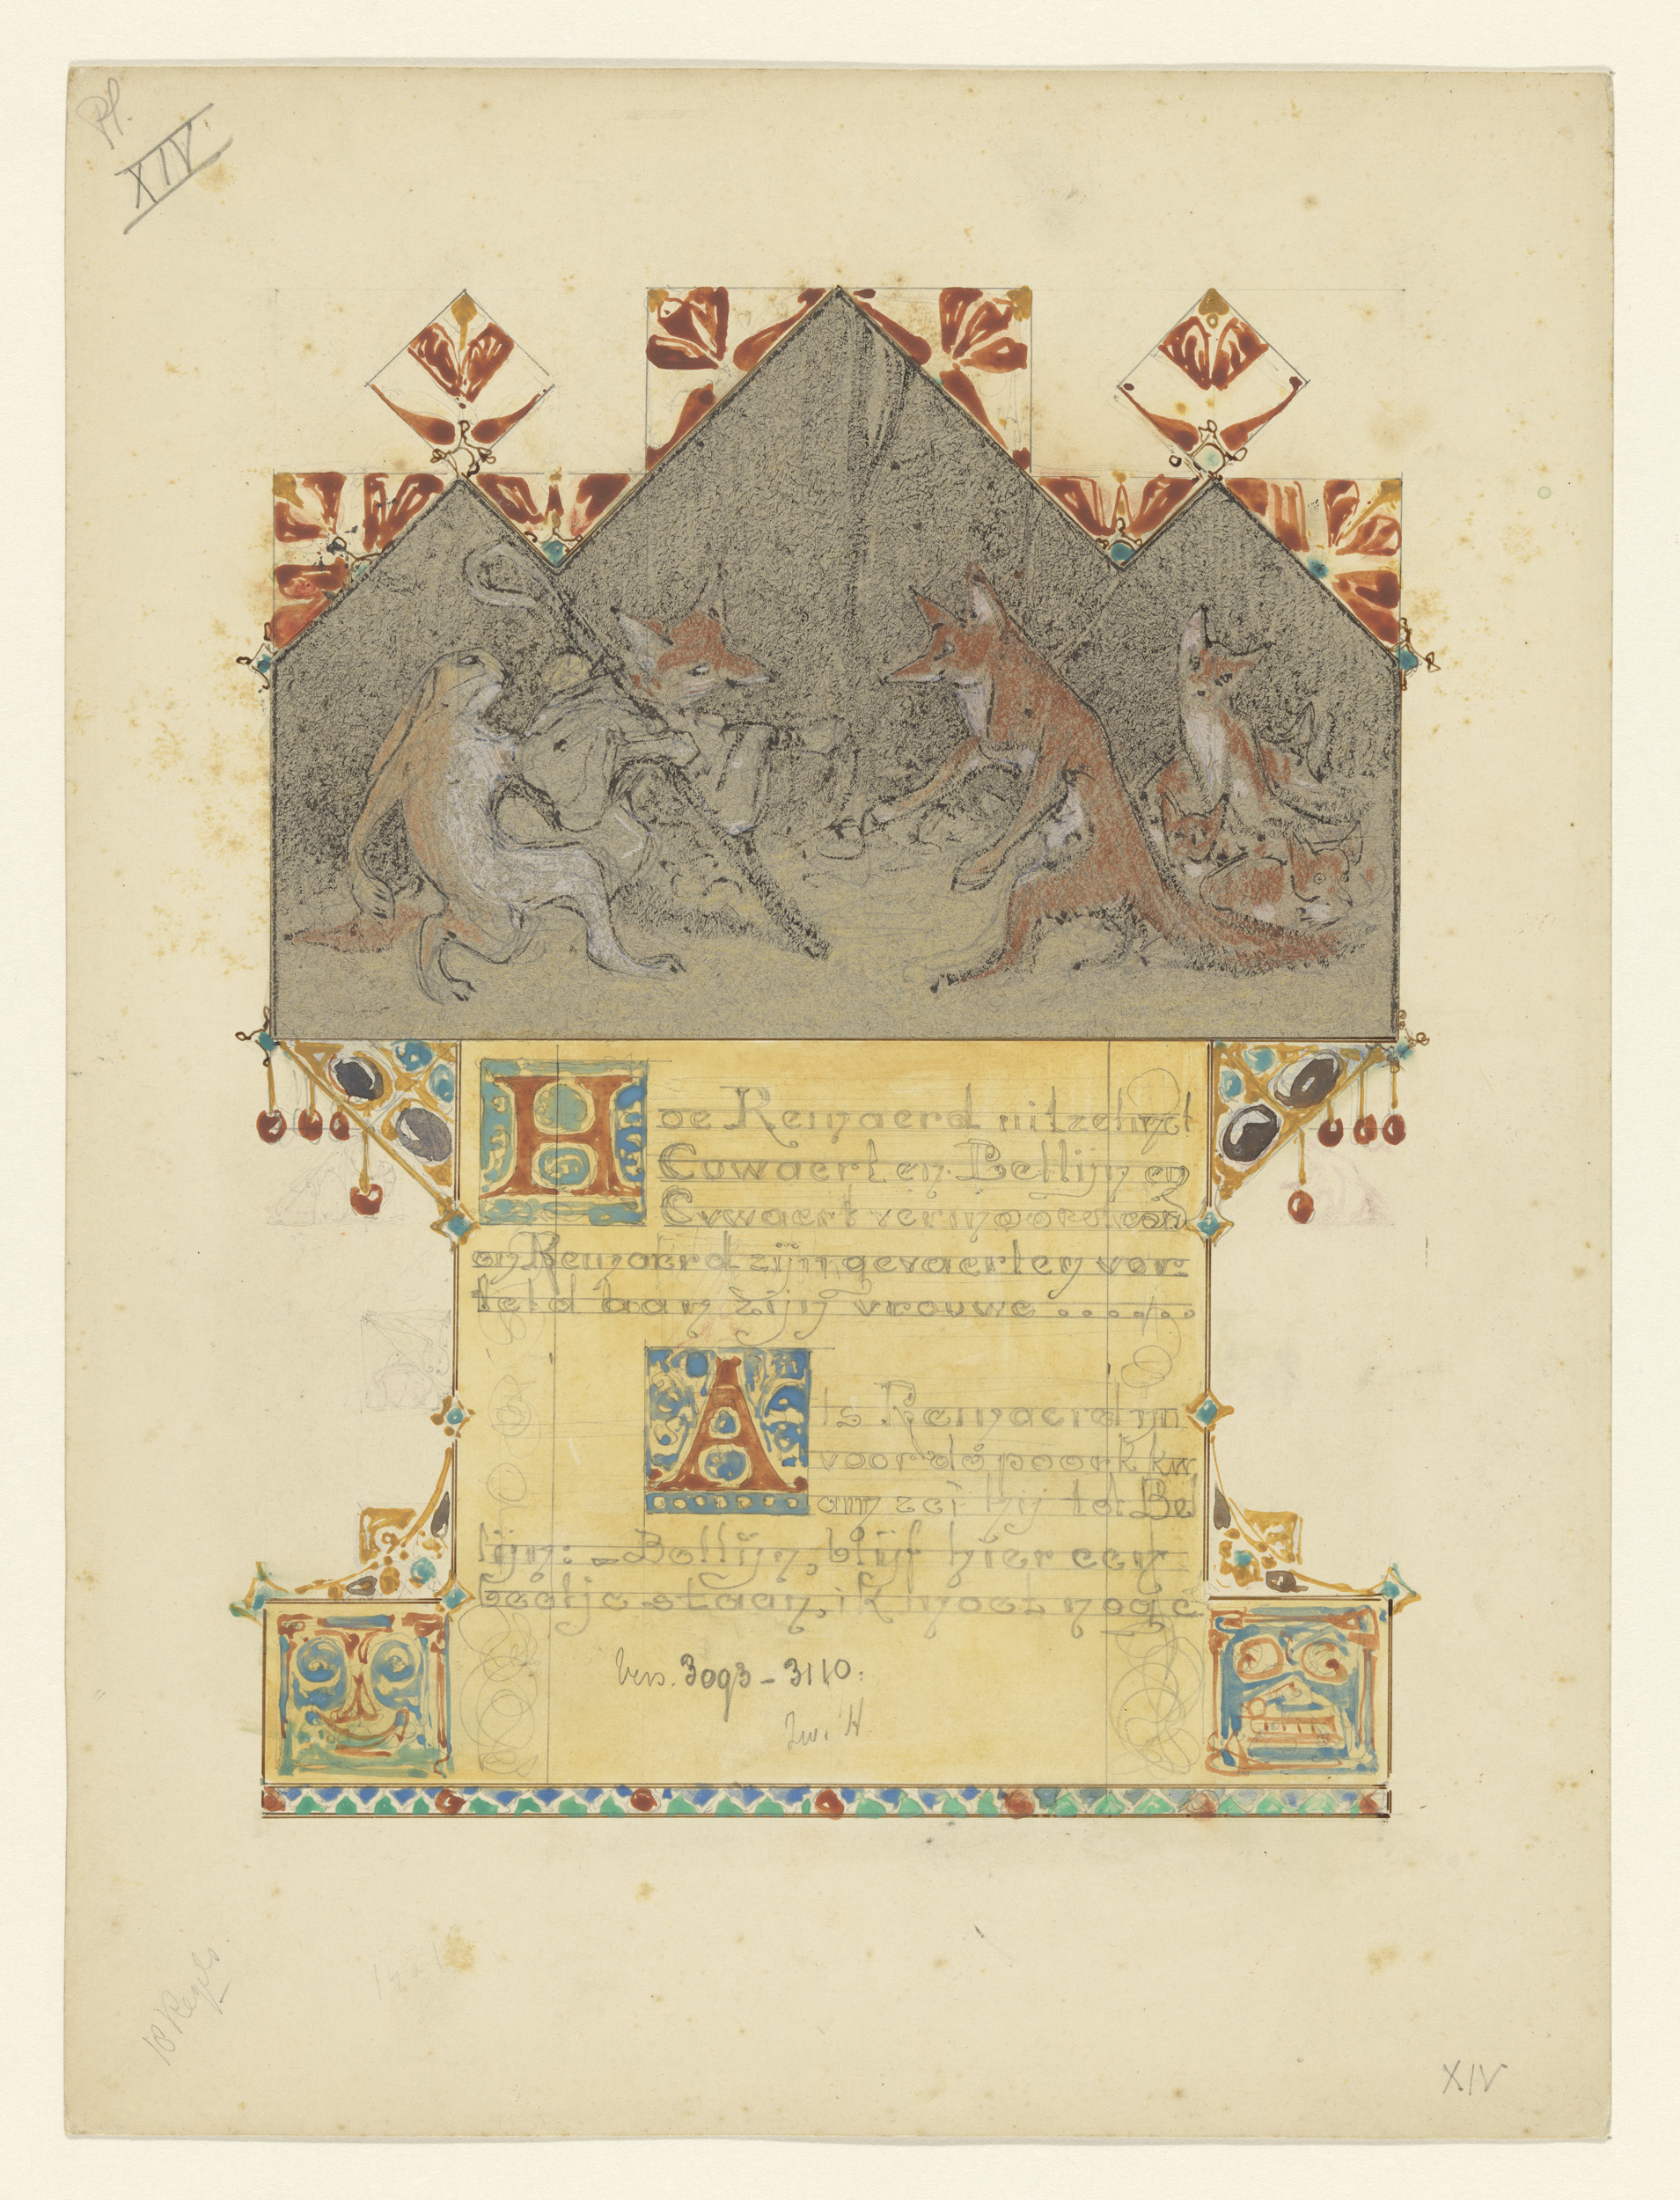 Pl.
XIV.
Hoe Reinaerd uitzeijnt
Cuwaert en Bellijn en
Cuwaert vermoord
en Reinaerd zijn gevaerten ver-
teld aan zijn vrouwe ......
Als Reinaerd in
voor de poort kw
am zei hij tot Bel
lijn: - Bellijn, blijf hier een
beetje staan, ik moet nog
Vers. 3093 - 3110:
18 Regels
XIV